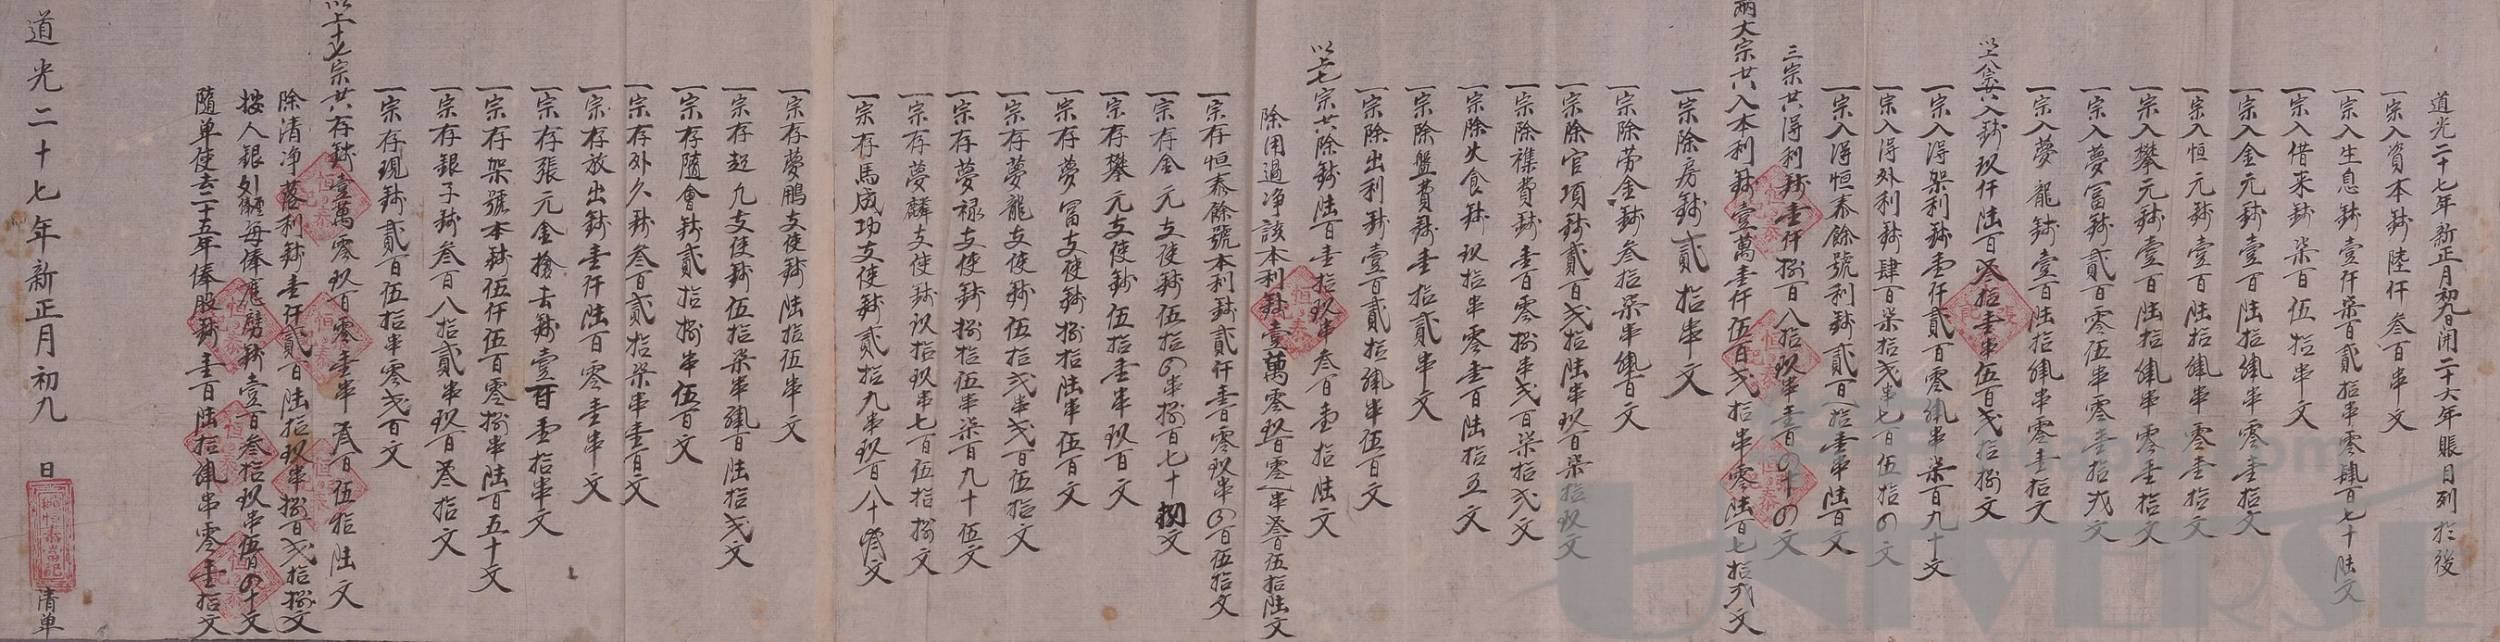 道光二十七年新正月初九日開二十六年賬目列於後
一宗入資本錢陸仟叁百串文
一宗入生息錢壹仟柒百貳拾串零肆百七十陸文
一宗入借來錢柒百伍拾串文
一宗入金元錢壹百陸拾肆串零壹拾文
一宗入恒元錢壹百陸拾肆串零壹拾文
一宗入攀元錢壹百陸拾肆串零壹拾文
一宗入夢冨錢貳百零伍串零壹拾弍文
一宗入夢龍錢壹百陸拾肆串零壹拾文
以上八宗共入錢玖仟陸百叁拾壹串伍百弍拾捌文
一宗入得架利錢壹仟貳百零肆串柒百九十文
一宗入得外利錢肆百柒拾弍串七百伍拾四文
一宗入得恒泰餘號利錢貳百八拾壹串陸百文
三宗共得利錢壹仟捌百八拾玖串壹百四十四文
兩大宗共入本利錢壹萬壹仟伍百弍拾串零陸百七拾弍文
一宗除房錢貳拾串文
一宗除劳金錢叁拾柒串肆百文
一宗除官項錢貳百弍拾陸串玖百柒拾玖文
一宗除襍費錢壹百零捌串弍百柒拾弍文
一宗除火食錢玖拾串零壹百陸拾五文
一宗除盤費錢壹拾貳串文
一宗除出利錢壹百貳拾肆串伍百文
以上七宗共除錢陸百壹拾玖串叁百壹拾陸文
除用過净該本利錢壹萬零玖百零一串叁百伍拾陸文
一宗存恒泰餘號本利錢貳仟壹百零玖串四百伍拾文
一宗存金元支使錢伍拾四串捌百七十捌文
一宗存攀元支使錢伍拾壹串玖百文
一宗存夢冨支使錢捌拾陸串伍百文
一宗存夢龍支使錢伍拾弍串弍百伍拾文
一宗存夢禄支使錢捌拾伍串柒百九十伍文
一宗存夢麟支使錢玖拾玖串七百伍拾捌文
一宗存馬成功支使錢貳拾九串玖百八十叁文
一宗存夢鵬支使錢陸拾伍串文
一宗存超九支使錢伍拾柒串肆百陸拾弍文
一宗存隨會錢貳拾捌串伍百文
一宗存外欠錢叁百貳拾柒串壹百文
一宗存放出錢壹仟陸百零壹串文
一宗存張元金搶去錢壹百壹拾串文
一宗存架號本錢伍仟伍百零捌串陸百五十文
一宗存銀子錢叁百八拾貳串玖百叁拾文
一宗存現錢貳百伍拾串零弍百文
以上十七宗共存錢壹萬零玖百零壹串叁百伍拾陸文
除清净落利錢壹仟貳百陸拾玖串捌百弍拾捌文
按人銀外每俸應劈錢壹百叁拾玖串伍百四十文
隨单使去二十五年俸股錢壹百陸拾肆串零壹拾文
道光二十七年新正月初九日
清单